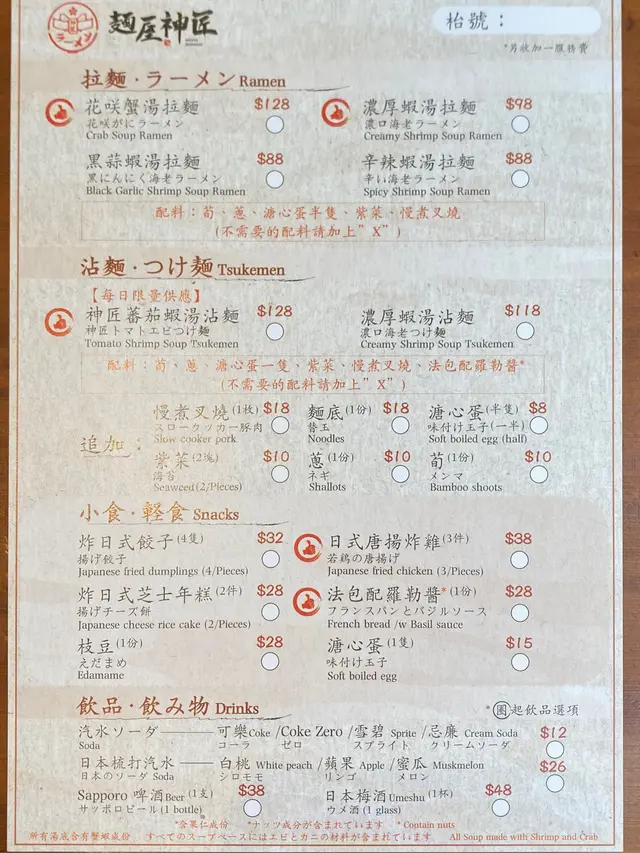 ラーメン
麵屋神匠
枱號：
*另收加一服務費
拉麵·ラーメン Ramen
花咲蟹湯拉麵 $128
花咲がにラーメン
Crab Soup Ramen
濃厚蝦湯拉麵 $98
濃口海老ラーメン
Creamy Shrimp Soup Ramen
黑蒜蝦湯拉麵 $88
黒にんにく海老ラーメン
Black Garlic Shrimp Soup Ramen
辛辣蝦湯拉麵 $88
辛い海老ラーメン
Spicy Shrimp Soup Ramen
配料：荀、蔥、溏心蛋半隻、紫菜、慢煮叉燒
(不需要的配料請加上”X”)
沾麵·つけ麵 Tsukemen
【每日限量供應】
神匠蕃茄蝦湯沾麵 $128
神匠トマトエビつけ麵
Tomato Shrimp Soup Tsukemen
濃厚蝦湯沾麵 $118
濃口海老つけ麵
Creamy Shrimp Soup Tsukemen
配料：荀、蔥、溏心蛋一隻、紫菜、慢煮叉燒、法包配羅勒醬*
(不需要的配料請加上”X”)
追加：
慢煮叉燒(1枚) $18
スロークッカー豚肉
Slow cooker pork
麵底(1份) $18
替玉
Noodles
溏心蛋(半隻) $8
味付け玉子(一半)
Soft boiled egg (half)
紫菜(2塊) $10
海苔
Seaweed(2/Pieces)
蔥(1份) $10
ネギ
Shallots
荀(1份) $10
メンマ
Bamboo shoots
小食·軽食 Snacks
炸日式餃子(4隻) $32
揚げ餃子
Japanese fried dumplings (4/Pieces)
日式唐揚炸雞(3件) $38
若鶏の唐揚げ
Japanese fried chicken (3/Pieces)
炸日式芝士年糕(2件) $28
揚げチーズ餅
Japanese cheese rice cake (2/Pieces)
法包配羅勒醬*(1份) $28
フランスパンとバジルソース
French bread /w Basil sauce
枝豆(1份) $28
えだまめ
Edamame
溏心蛋(1隻) $15
味付け玉子
Soft boiled egg
飲品·飲み物 Drinks
*圈起飲品選項
汽水ソーダ 可樂Coke /Coke Zero /雪碧 Sprite /忌廉 Cream Soda $12
Soda コーラ ゼロ スプライト クリームソーダ
日本梳打汽水 白桃 White peach /蘋果 Apple /蜜瓜 Muskmelon $26
日本のソーダ Soda シロモモ リンゴ メロン
Sapporo 啤酒Beer(1支) $38
サッポロビール(1 bottle)
日本梅酒Umeshu(1杯) $48
ウメ酒 (1 glass)
*含果仁成份 *ナッツ成分が含まれています *Contain nuts
所有湯底含有蟹蝦成份 すべてのスープベースにはエビとカニの材料が含まれています All Soup made with Shrimp and Crab